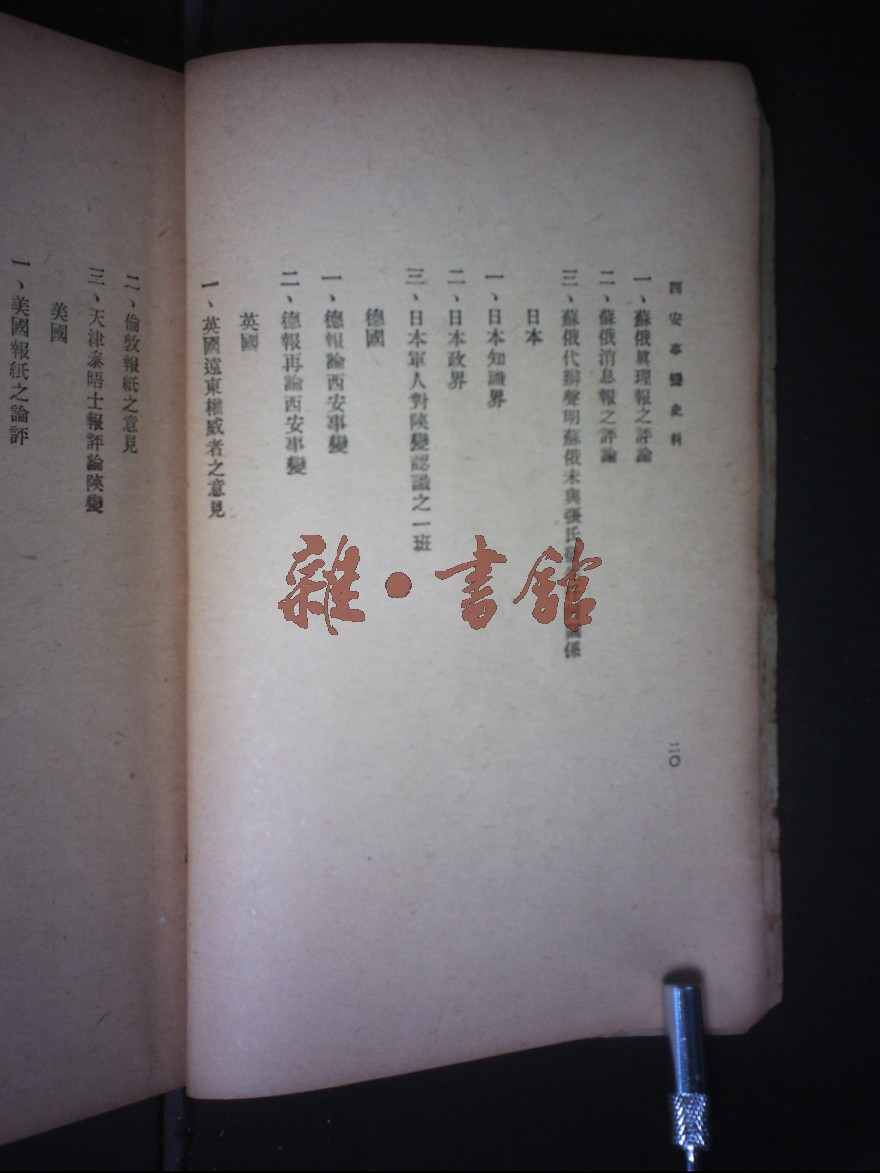 西安事變史料
二〇
一、蘇俄眞理報之評論
二、蘇俄消息報之評論
三、蘇俄代辦聲明蘇俄未與張氏 關係
日本
一、日本知識界
二、日本政界
三、日本軍人對陝變認識之一班
德國
一、德報論西安事變
二、德報再論西安事變
英國
一、英國遠東權威者之意見
二、倫敦報紙之意見
三、天津泰晤士報評論陝變
美國
一、美國報紙之論評
雜·書館